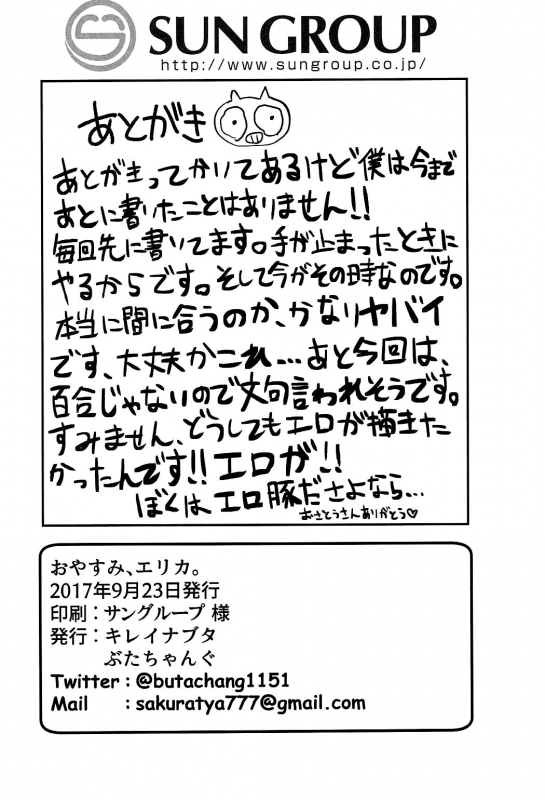 SUN GROUP
http://www.sungroup.co.jp/
あとがき
あとがきってかいてあるけど僕は今まで
あとに書いたことはありません!!
毎回先に書いてます。手が止まったときに
やるからです。そして今がその時なのです。
本当に間に合うのか、かなりヤバイ
です、大丈夫かこれ...あと今回は、
百合じゃないので文句言われそうです。
すみません、どうしてもエロが描きた
かったんです!!エロが!!
ぼくはエロ豚ださよなら...
おさとうさんありがとう♡
おやすみ、エリカ。
2017年9月23日発行
印刷:サングループ 様
発行:キレイナブタ
ぶたちゃんぐ
Twitter : @butachang1151
Mail : sakuratya777@gmail.com